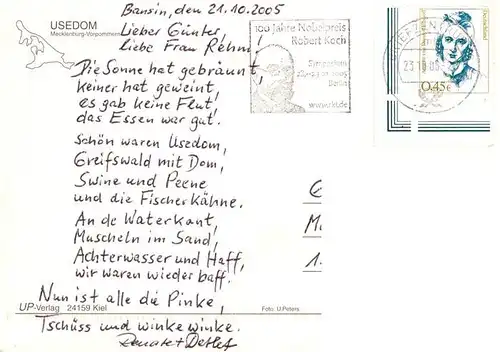 Bansin, den 21.10.2005
USEDOM
Mecklenburg-Vorpommern
Lieber Günter,
liebe Frau Rehm!
100 Jahre Nobelpreis
Robert Koch
Berlin
www.rki.de
BRIEFZEN
23.10.05
0,45€
Die Sonne hat gebräunt,
keiner hat geweint,
es gab keine Flut,
das Essen war gut.
Schön waren Usedom,
Greifswald mit Dom,
Swine und Peene
und die Fischerkähne.
An de Waterkant,
Muscheln im Sand,
Achterwasser und Haff,
wir waren wieder baff.
Nun ist alle die Pinke,
UP-Verlag 24159 Kiel
Foto: U.Peters
Tschüss und winke winke.
Renate + Detlef